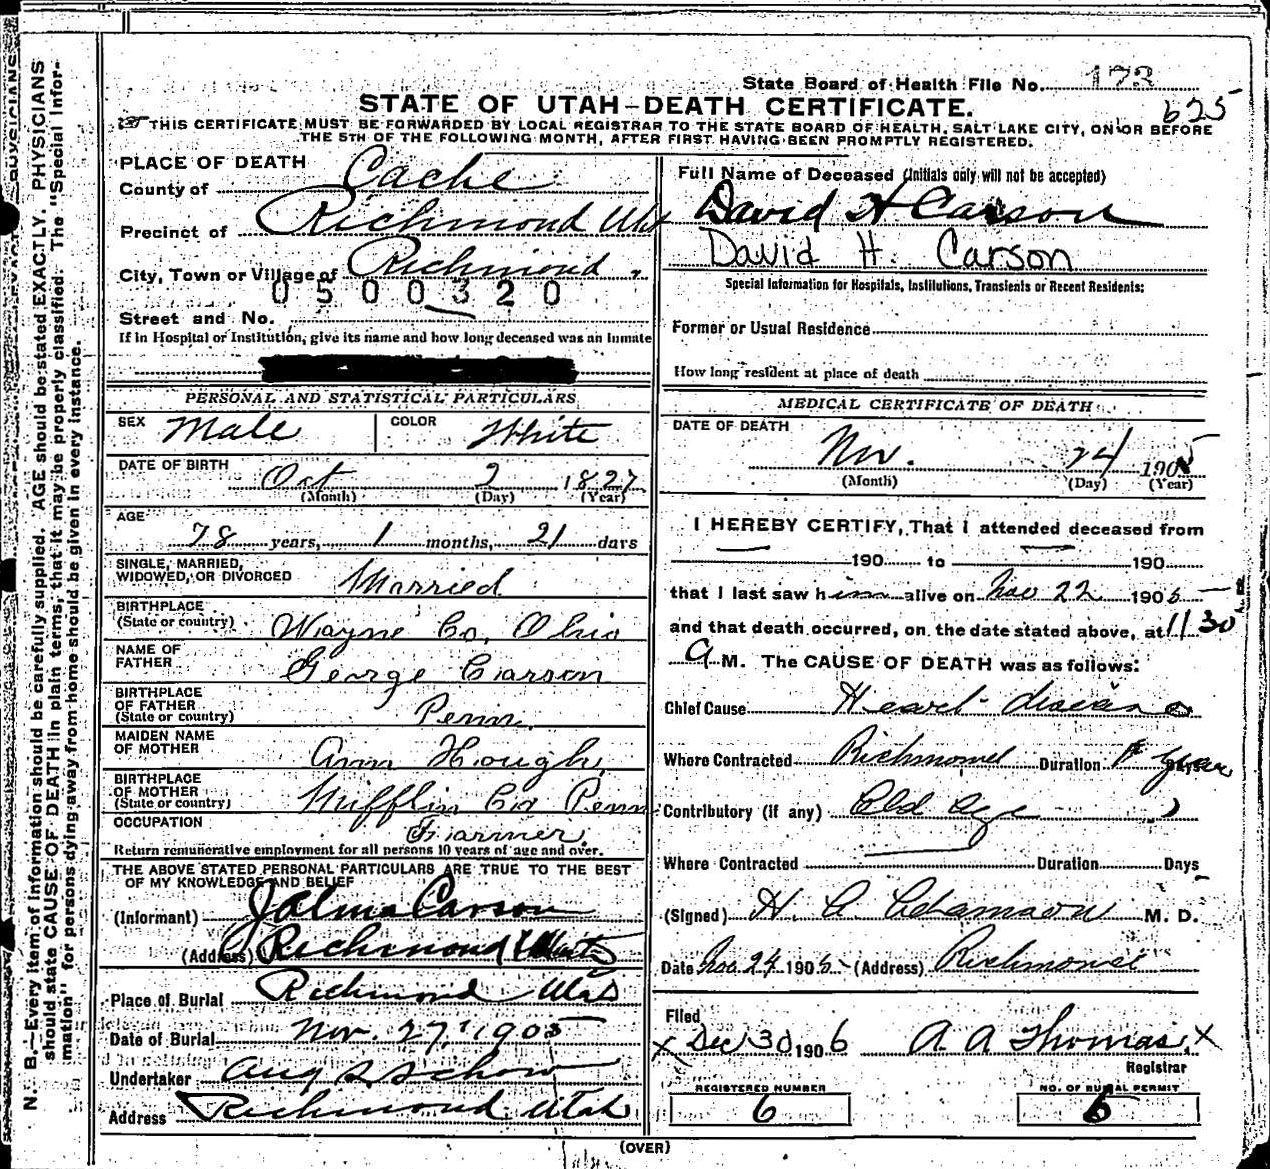 State Board of Health File No. 173
625
STATE OF UTAH—DEATH CERTIFICATE.
THIS CERTIFICATE MUST BE FORWARDED BY LOCAL REGISTRAR TO THE STATE BOARD OF HEALTH, SALT LAKE CITY, ON OR BEFORE
THE 5TH OF THE FOLLOWING MONTH, AFTER FIRST HAVING BEEN PROMPTLY REGISTERED.
PLACE OF DEATH
County of Cache
Precinct of Richmond Utah
City, Town or Village of Richmond
0500320
Street and No.
If in Hospital or Institution, give its name and how long deceased was an inmate
PERSONAL AND STATISTICAL PARTICULARS
SEX Male COLOR White
DATE OF BIRTH Oct 2 1827
(Month) (Day) (Year)
AGE
78 years, 1 months, 21 days
SINGLE, MARRIED,
WIDOWED, OR DIVORCED Married
BIRTHPLACE
(State or country) Wayne Co, Ohio
NAME OF
FATHER George Carson
BIRTHPLACE
OF FATHER
(State or country) Penn.
MAIDEN NAME
OF MOTHER Ann Hough
BIRTHPLACE
OF MOTHER
(State or country) Mifflin Co Penn
OCCUPATION Farmer
Return remunerative employment for all persons 10 years of age and over.
THE ABOVE STATED PERSONAL PARTICULARS ARE TRUE TO THE BEST
OF MY KNOWLEDGE AND BELIEF
(Informant) J Alma Carson
(Address) Richmond Utah
Place of Burial Richmond Utah
Date of Burial Nov. 27, 1905
Undertaker Aug
Address Richmond Utah
Full Name of Deceased (Initials only will not be accepted)
David H Carson
David H. Carson
Special Information for Hospitals, Institutions, Transients or Recent Residents:
Former or Usual Residence
How long resident at place of death
MEDICAL CERTIFICATE OF DEATH
DATE OF DEATH
Nov. 24 1905
(Month) (Day) (Year)
I HEREBY CERTIFY, That I attended deceased from
190 to 190
that I last saw him alive on Nov 22 1905
and that death occurred, on the date stated above, at 11 30
A M. The CAUSE OF DEATH was as follows:
Chief Cause Heart disease
Where Contracted Richmond Duration Days
Contributory (if any) Old age
Where Contracted Duration Days
(Signed) H. A. Adamson M. D.
Date Nov. 24 1905 (Address) Richmond
Filed
X Dec 30 1906 A A Thomas X
Registrar
REGISTERED NUMBER
6
NO. OF BURIAL PERMIT
6
(OVER)
N. B.—Every item of information should be carefully supplied. AGE should be stated EXACTLY. PHYSICIANS
should state CAUSE OF DEATH in plain terms, that it may be properly classified. The "Special Infor-
mation" for persons dying away from home should be given in every instance.